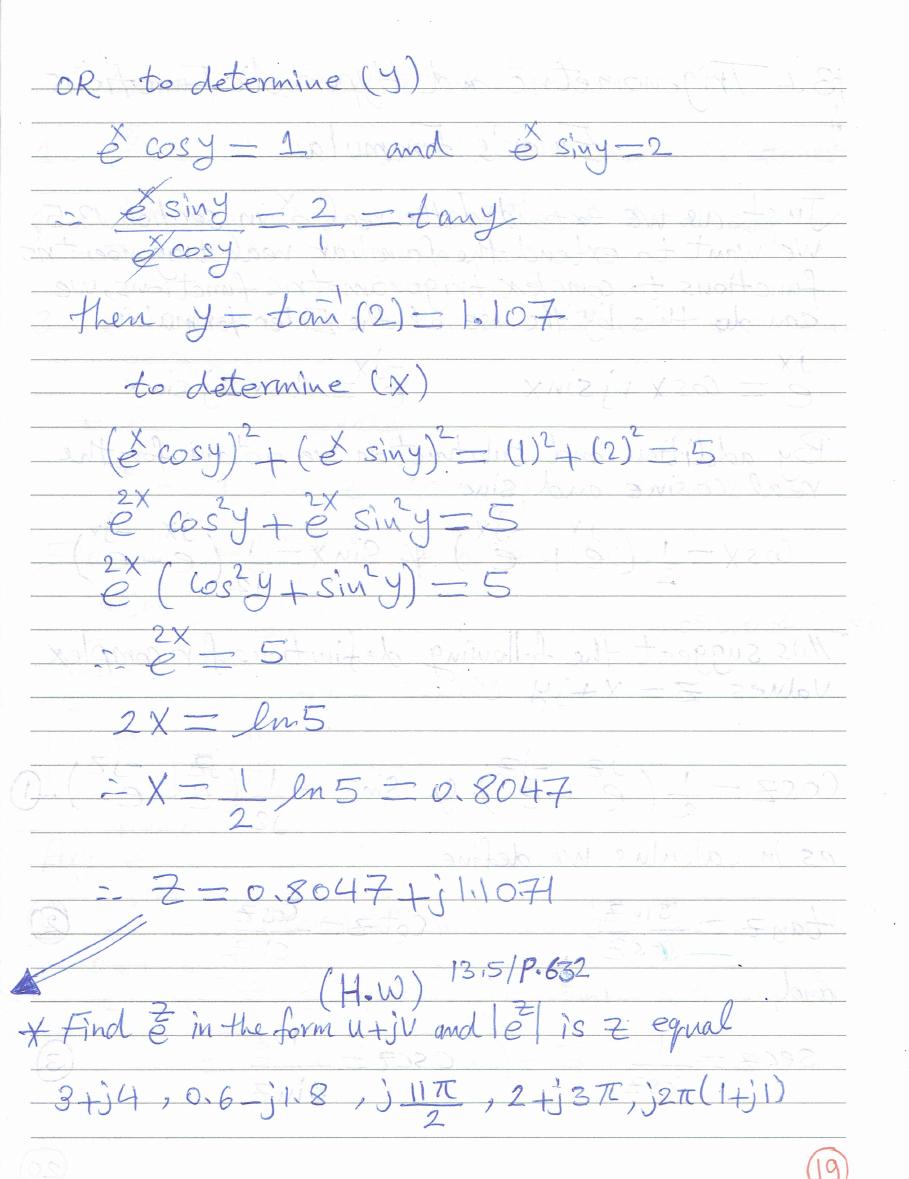 OR to determine (y)
e^x cosy = 1 and e^x siny = 2
∴ e^x siny / e^x cosy = 2/1 = tany
then y = tan^-1 (2) = 1.107
to determine (x)
(e^x cosy)^2 + (e^x siny)^2 = (1)^2 + (2)^2 = 5
e^2x cos^2y + e^2x sin^2y = 5
e^2x (cos^2y + sin^2y) = 5
∴ e^2x = 5
2x = ln5
∴ x = 1/2 ln5 = 0.8047
∴ Z = 0.8047 + j1.1071
(H.W) 13.5/P.632
* Find e^z in the form u+jv and |e^z| is z equal
3+j4, 0.6-j1.8, j 11π/2, 2+j3π, j2π(1+j1)
19